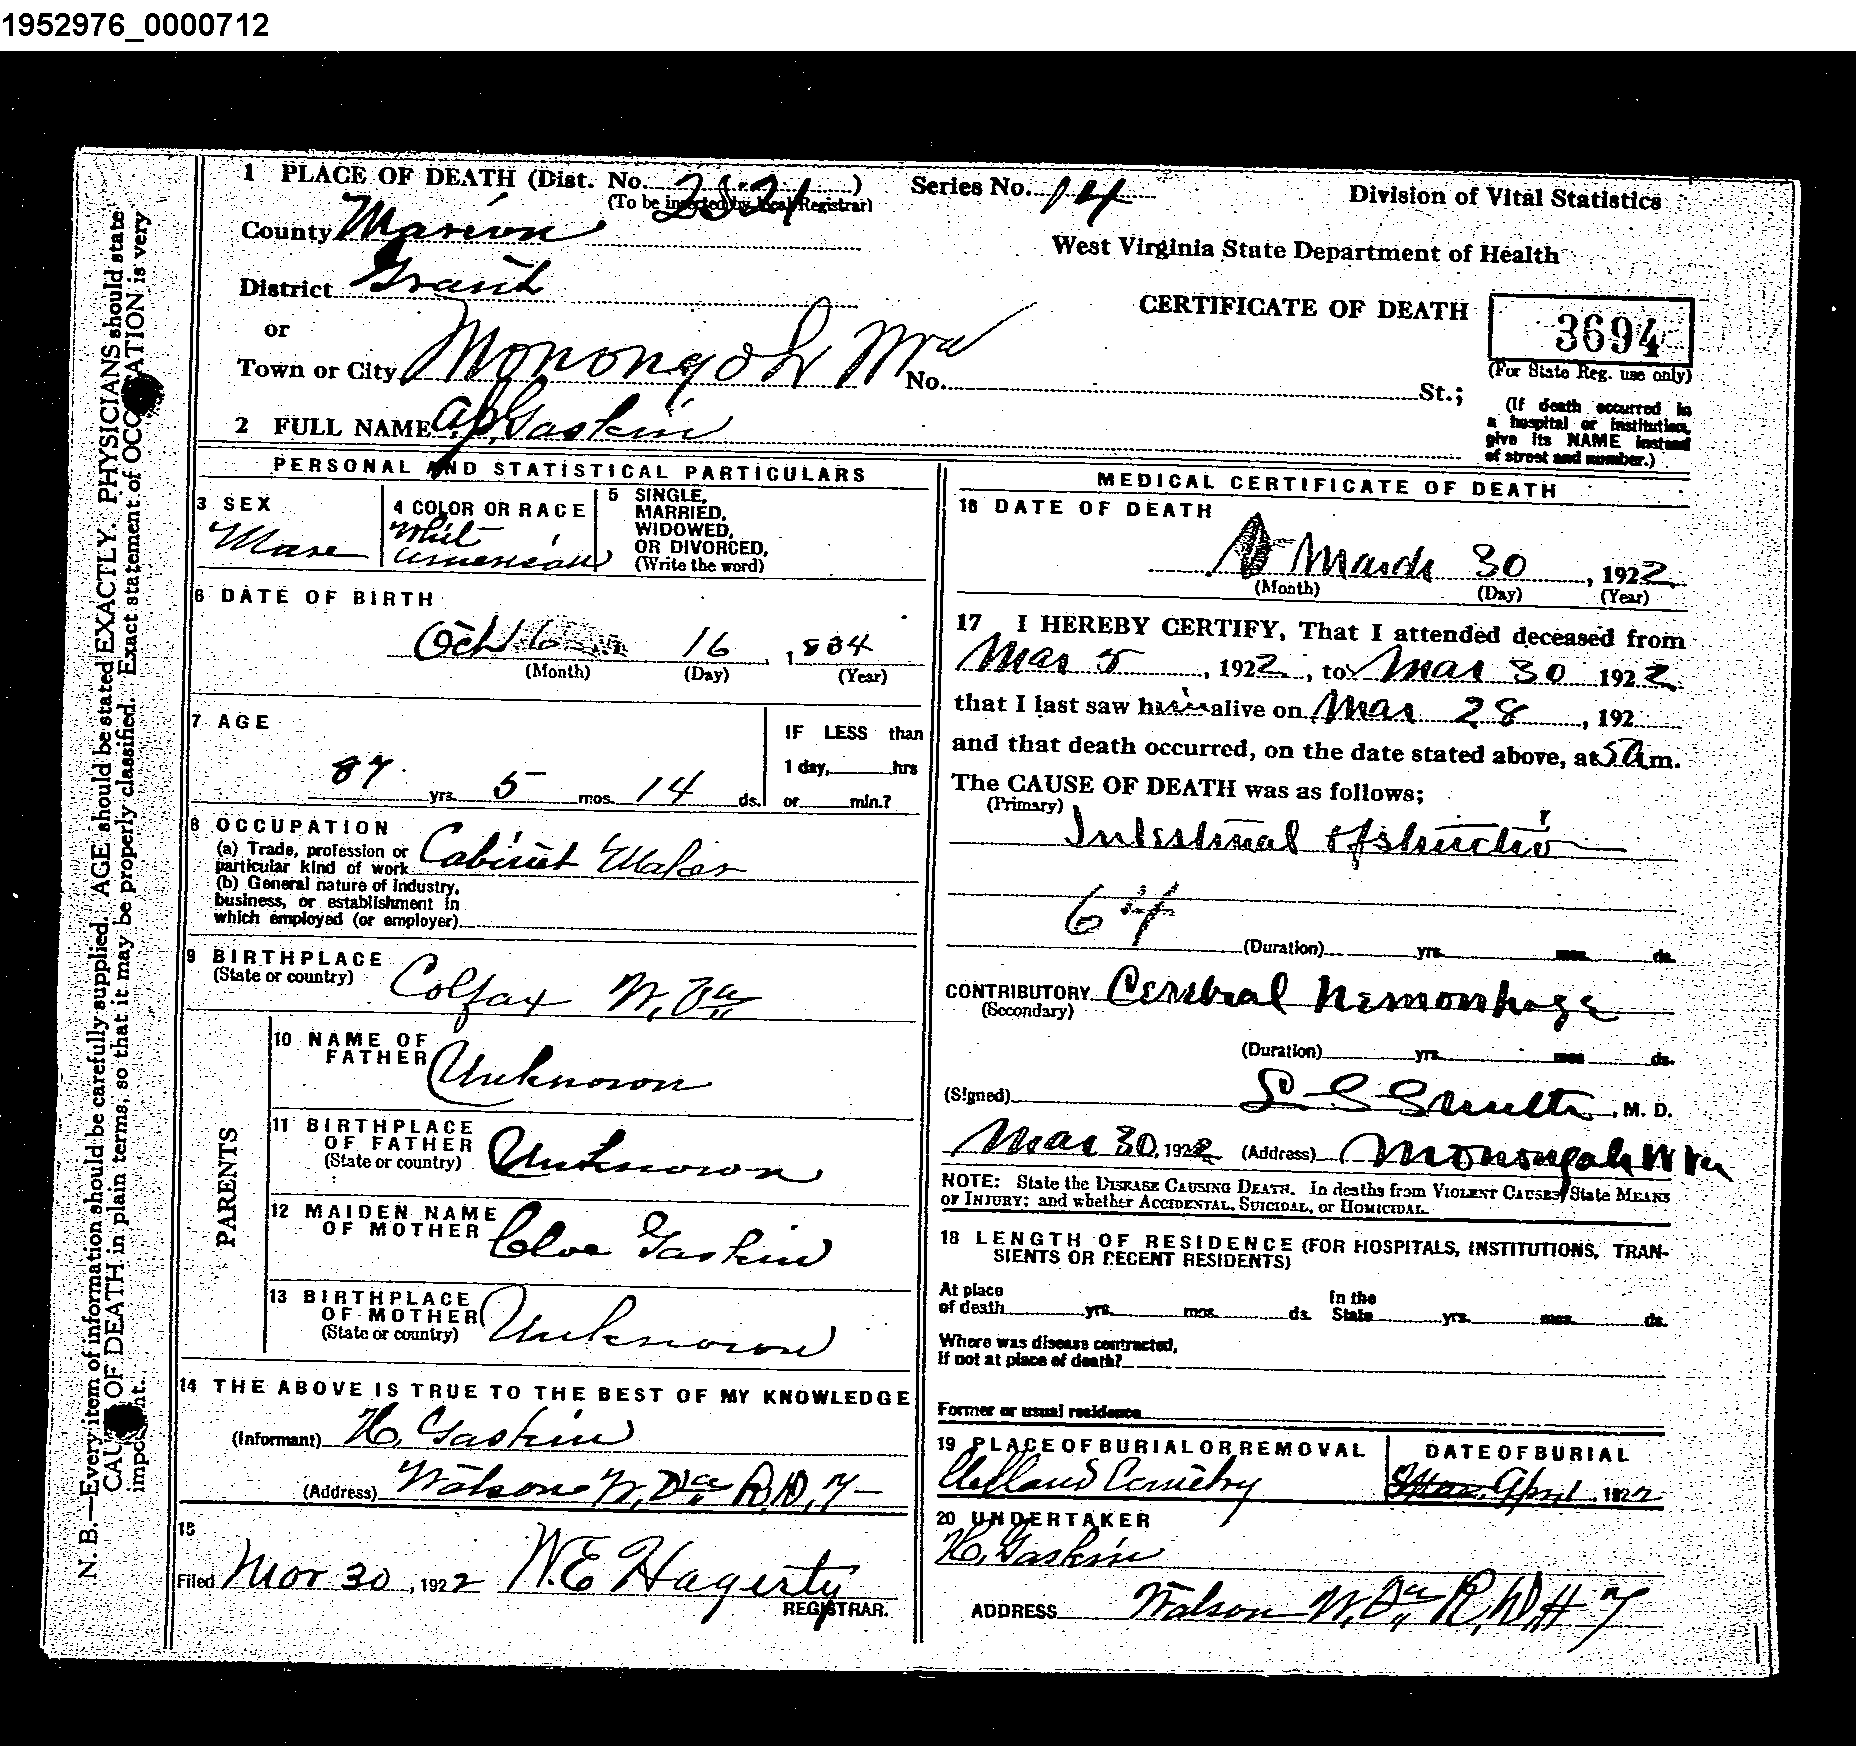 1952976_0000712
1 PLACE OF DEATH (Dist. No. 2521) Series No. 14 Division of Vital Statistics
(To be inserted by local Registrar)
County Marion
West Virginia State Department of Health
District Grant
or
CERTIFICATE OF DEATH 3694
(For State Reg. use only)
Town or City Monongah W Va No. St.;
(If death occurred in
a hospital or institution,
give its NAME instead
of street and number.)
2 FULL NAME Gaskin
PERSONAL AND STATISTICAL PARTICULARS
3 SEX
Male
4 COLOR OR RACE
Whit
American
5 SINGLE,
MARRIED,
WIDOWED,
OR DIVORCED,
(Write the word)
6 DATE OF BIRTH
Oct 16, 1834
(Month) (Day) (Year)
7 AGE
87 yrs. 5 mos. 14 ds.
IF LESS than
1 day, hrs
or min.?
8 OCCUPATION
(a) Trade, profession or
particular kind of work Cabinet Maker
(b) General nature of Industry,
business, or establishment in
which employed (or employer)
9 BIRTHPLACE
(State or country) Colfax W. Va
PARENTS
10 NAME OF
FATHER Unknown
11 BIRTHPLACE
OF FATHER
(State or country) Unknown
12 MAIDEN NAME
OF MOTHER Cloe Gaskin
13 BIRTHPLACE
OF MOTHER
(State or country) Unknown
14 THE ABOVE IS TRUE TO THE BEST OF MY KNOWLEDGE
(Informant) H. Gaskin
(Address) Watson W. Va R.D. 7
15
Filed Mar 30, 1922 W.E Hagerty
REGISTRAR.
MEDICAL CERTIFICATE OF DEATH
16 DATE OF DEATH
March 30, 1922
(Month) (Day) (Year)
17 I HEREBY CERTIFY, That I attended deceased from
Mar 5, 1922, to Mar 30 1922
that I last saw him alive on Mar 28, 192
and that death occurred, on the date stated above, at 5 A m.
The CAUSE OF DEATH was as follows;
(Primary)
Intestinal Obstructio
64
(Duration) yrs. mos. ds.
CONTRIBUTORY Cerebral Hemorrhage
(Secondary)
(Duration) yrs. mos ds.
(Signed) M. D.
Mar 30, 1922 (Address) Monongah W Va
NOTE: State the DISEASE CAUSING DEATH. In deaths from VIOLENT CAUSES, State MEANS
OF INJURY; and whether ACCIDENTAL, SUICIDAL, or HOMICIDAL.
18 LENGTH OF RESIDENCE (FOR HOSPITALS, INSTITUTIONS, TRAN-
SIENTS OR RECENT RESIDENTS)
At place
of death yrs. mos. ds.
In the
State yrs. mos. ds.
Where was disease contracted,
If not at place of death?
Former or usual residence
19 PLACE OF BURIAL OR REMOVAL
Cemetry
DATE OF BURIAL
April, 1922
20 UNDERTAKER
H. Gaskin
ADDRESS Watson W. Va R.D # 7
N. B.—Every item of information should be carefully supplied. AGE should be stated EXACTLY. PHYSICIANS should state
CAUSE OF DEATH in plain terms, so that it may be properly classified. Exact statement of OCCUPATION is very
important.